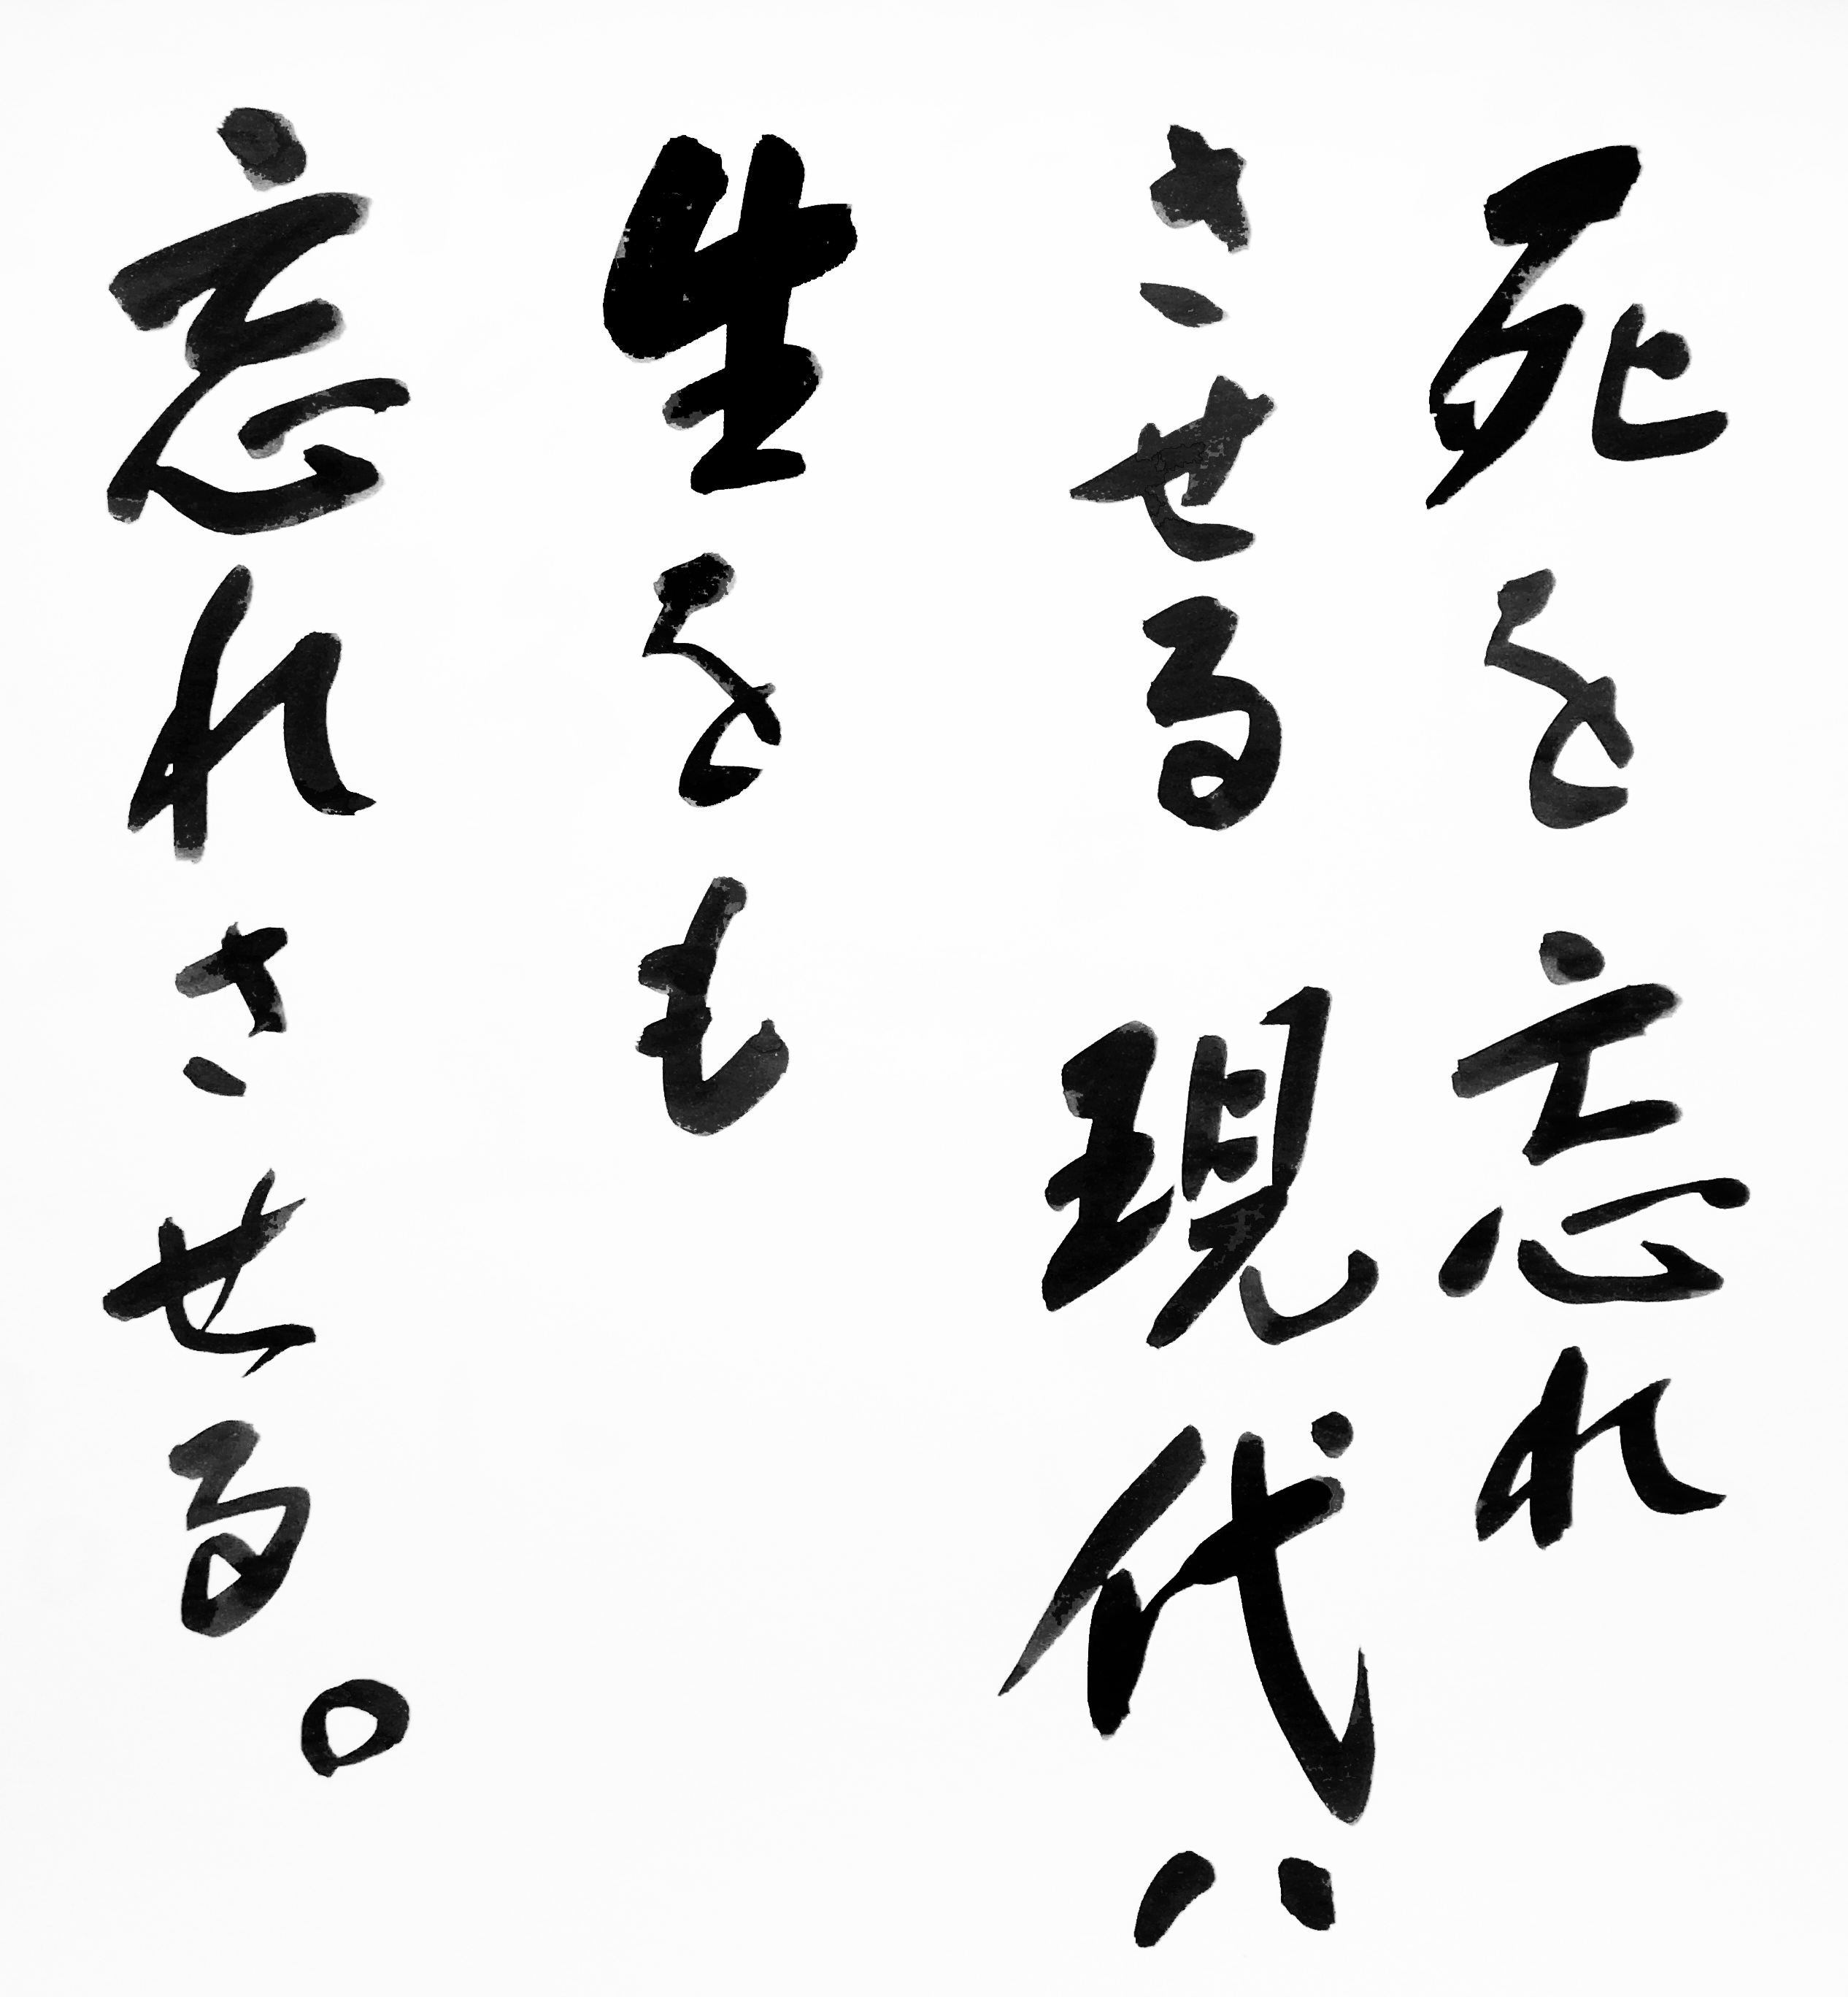 死を忘れ
させる現代ハ
生をも
忘れさせる。